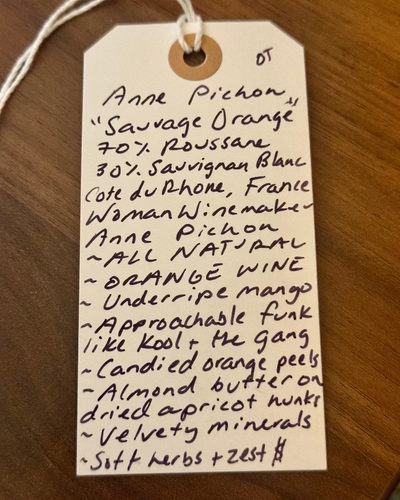 DT
Anne Pichon
"Sauvage Orange"
70% Roussane
30% Sauvignan Blanc
Cote du Rhone, France
Woman Winemaker
Anne Pichon
~ALL NATURAL
~ORANGE WINE
~Underripe mango
~Approachable funk
like Kool + the Gang
~Candied orange peels
~Almond butter on
dried apricot hunks
~Velvety minerals
~Soft herbs + zest $